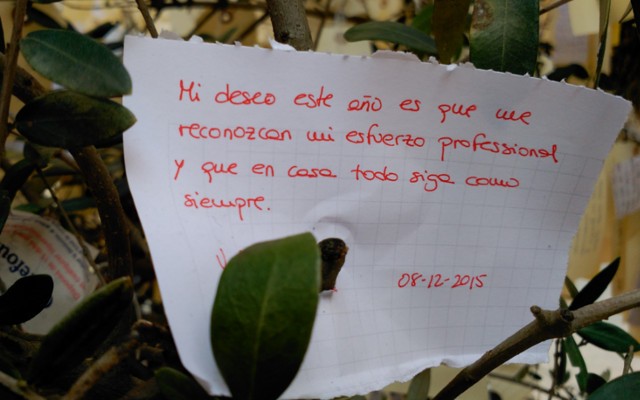 Mi deseo este año es que me
reconozcan mi esfuerzo professional
y que en casa todo siga como
siempre.
08-12-2015